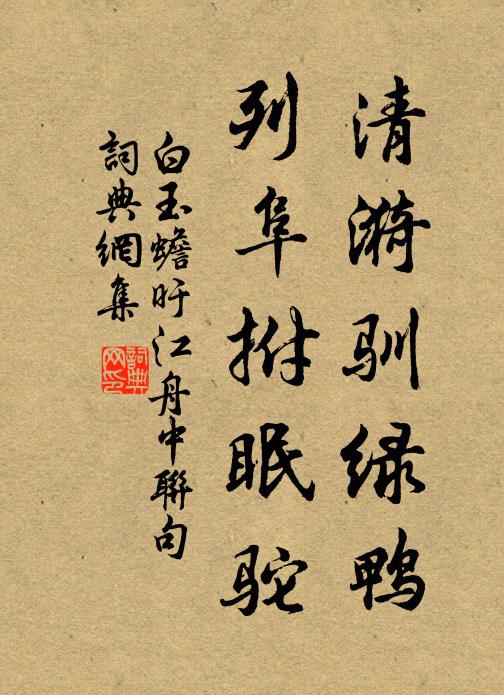 清漪驯绿鸭
列阜拊眠驼
白玉蟾盱江舟中联句
詞典網集
詞典
网印